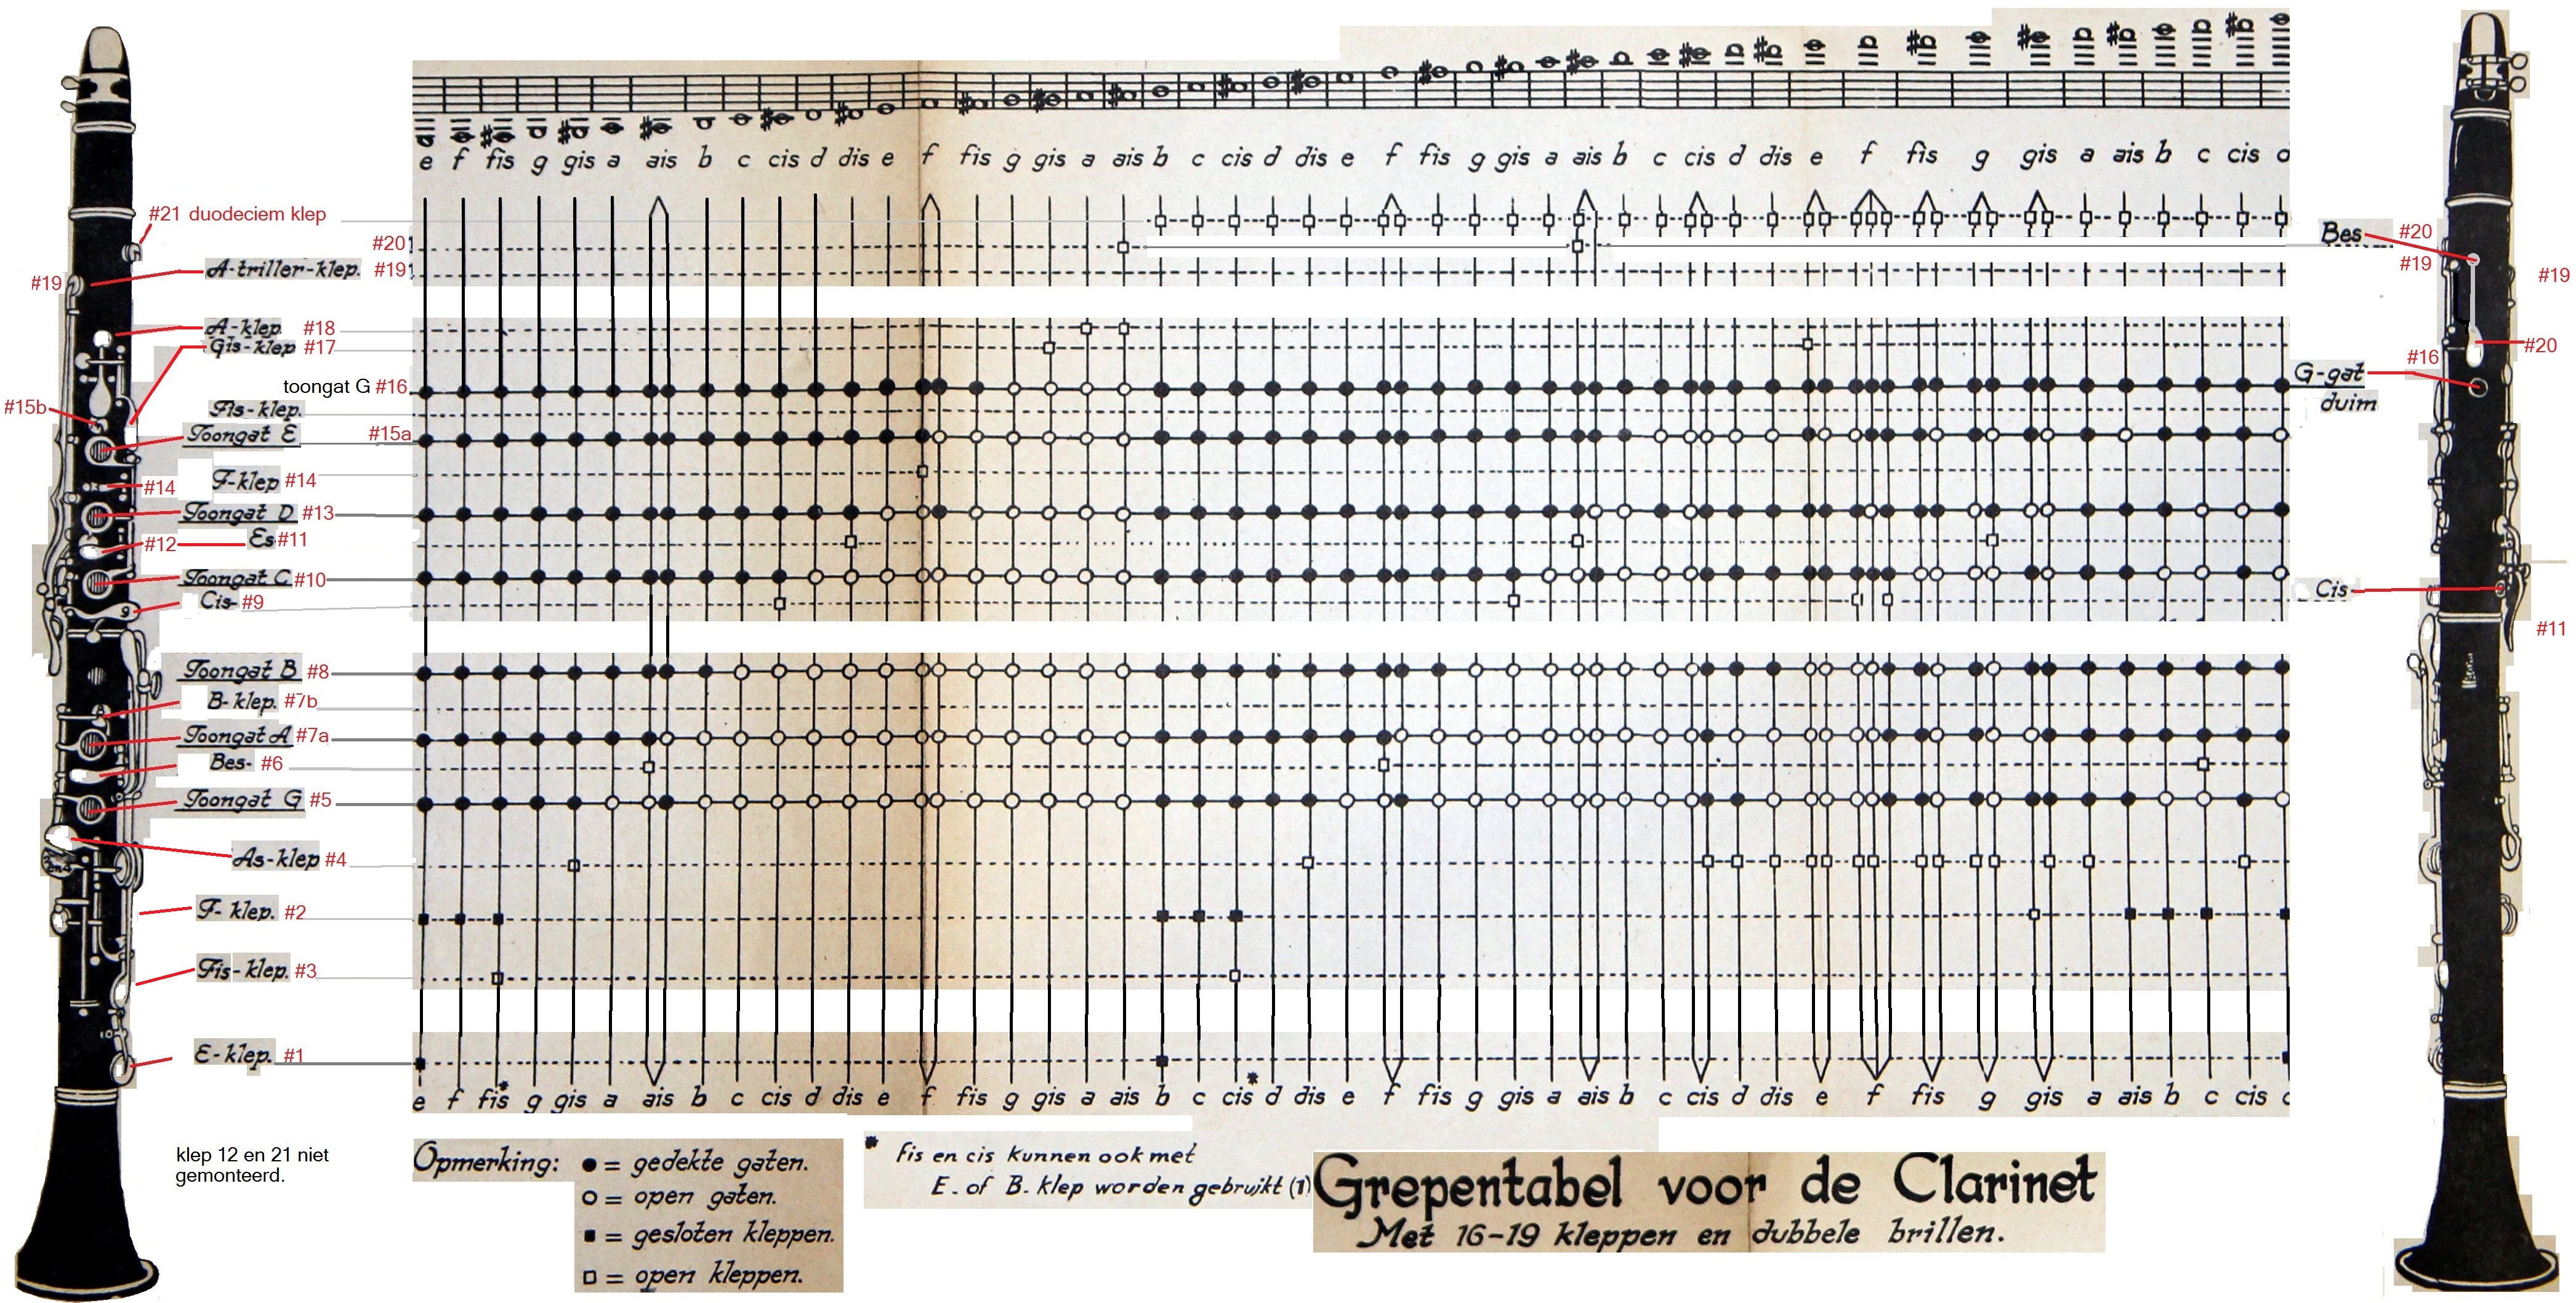 e f fis g gis a ais b c cis d dis e f fis g gis a ais b c cis d dis e f fis g gis a ais b c cis d dis e f fis g gis a ais b c cis d
#21 duodeciem klep
#20
A-triller-klep. #19
#19
A-klep #18
Gis-klep #17
toongat G #16
Fis-klep.
#15b
Toongat E #15a
F-klep #14
#14
Toongat D #13
Es #11
#12
Toongat C #10
Cis- #9
9
Toongat B #8
B-klep. #7b
Toongat A #7a
Bes- #6
Toongat G #5
As-klep #4
F-klep. #2
Fis-klep. #3
E-klep. #1
Bes #20
#19
#19
#20
#16
G-gat
duim
Cis
#11
e f fis* g gis a ais b c cis d dis e f fis g gis a ais b c cis* d dis e f fis g gis a ais b c cis d dis e f fis g gis a ais b c cis
klep 12 en 21 niet
gemonteerd.
Opmerking: ● = gedekte gaten.
○ = open gaten.
■ = gesloten kleppen.
□ = open kleppen.
* fis en cis kunnen ook met
E. of B. klep worden gebruikt (1)
Grepentabel voor de Clarinet
Met 16-19 kleppen en dubbele brillen.